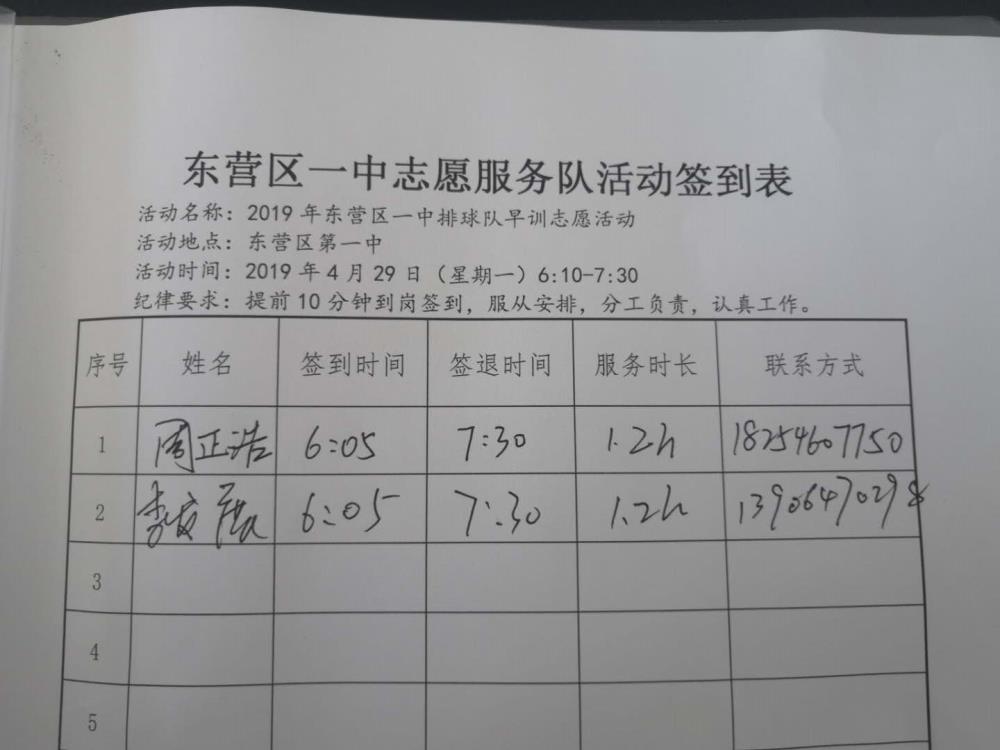 东营区一中志愿服务队活动签到表
活动名称：2019 年东营区一中排球队早训志愿活动
活动地点：东营区第一中
活动时间：2019 年 4 月 29 日（星期一）6:10-7:30
纪律要求：提前 10 分钟到岗签到，服从安排，分工负责，认真工作。
序号 姓名 签到时间 签退时间 服务时长 联系方式
1 周正浩 6:05 7:30 1.2h 18254607750
2 李 展 6:05 7:30 1.2h 13906470298
3
4
5